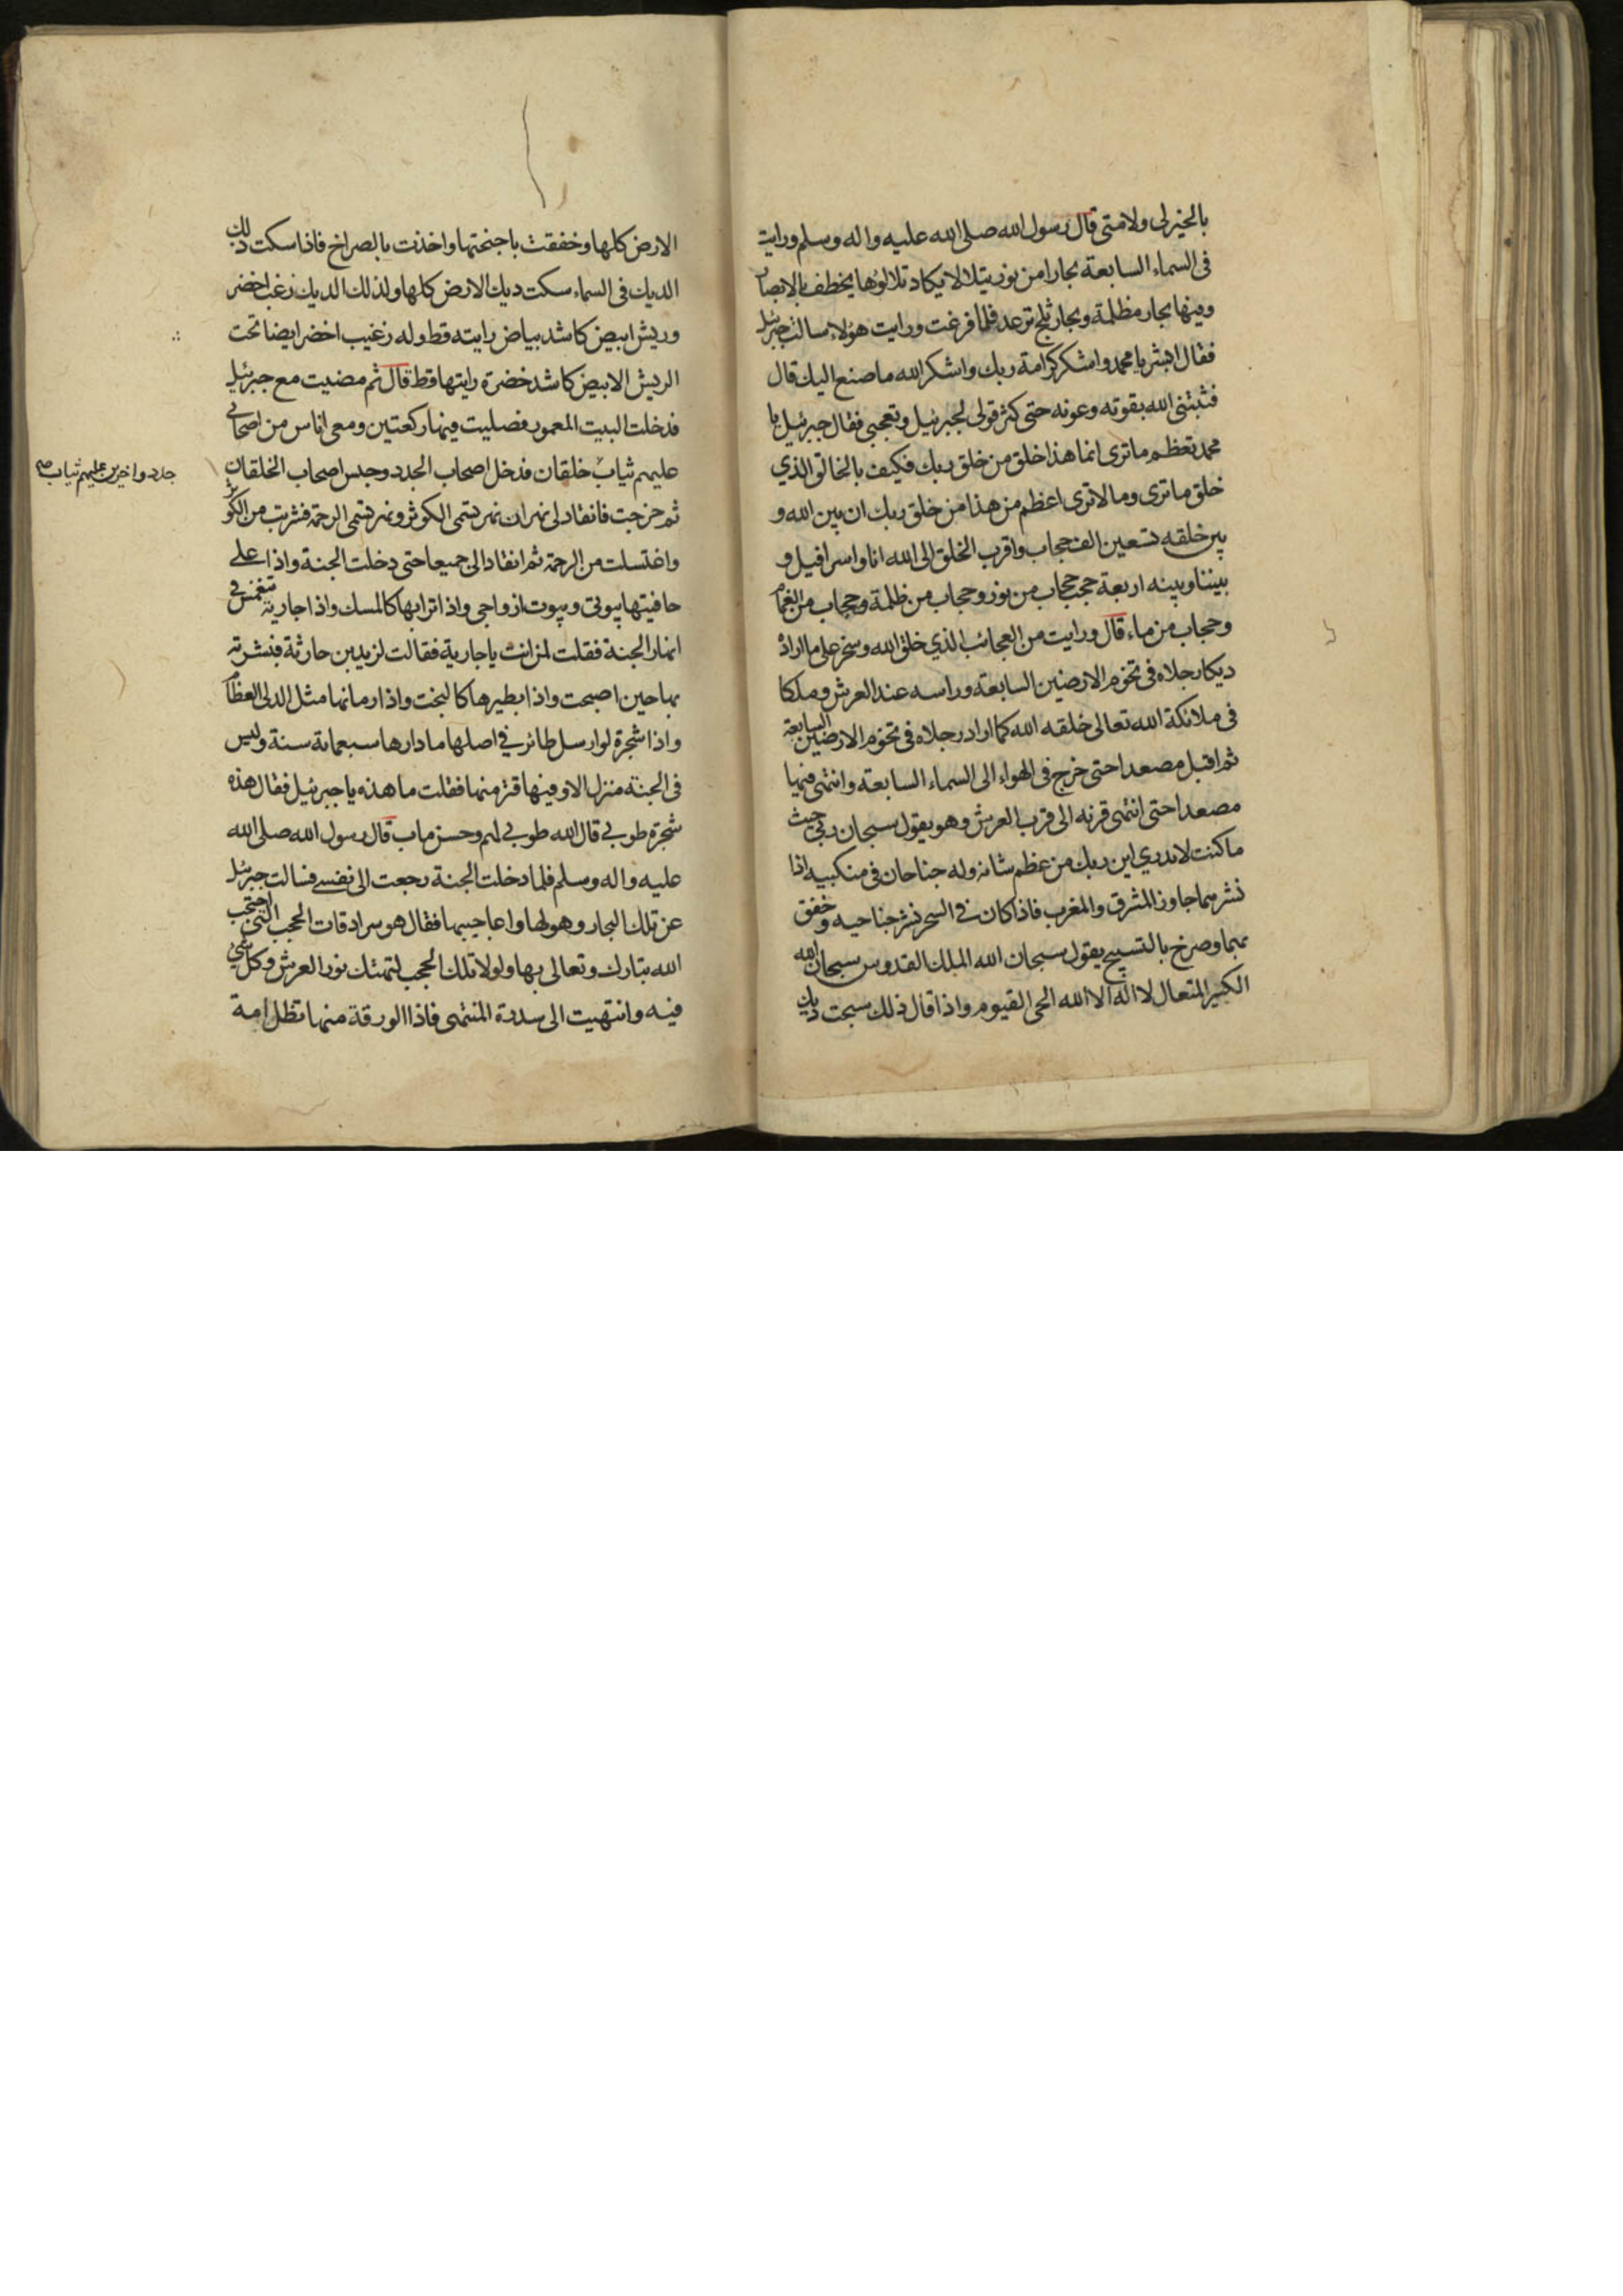 بالخير لى ولامتى قال رسول الله صلى الله عليه واله وسلم ورايت
فى السماء السابعة بحارا من نور يتلالا يكاد تلالوها يخطف بالابصار
وفيها بحار مظلمة وبحار ثلج ترعد فلما فرغت ورايت هؤلاء سالت جبرئيل
فقال ابشر يا محمد واشكر كرامة ربك واشكر الله ما صنع اليك قال
فثبتنى الله بقوته وعونه حتى كثر قولى لجبرئيل وتعجبى فقال جبرئيل يا
محمد تعظم ما ترى انما هذا خلق من خلق ربك فكيف بالخالق الذي
خلق ما ترى وما لا ترى اعظم من هذا من خلق ربك ان بين الله و
بين خلقه تسعين الف حجاب واقرب الخلق الى الله انا واسرافيل و
بيننا وبينه اربعة حجب حجاب من نور وحجاب من ظلمة وحجاب من الغمام
وحجاب من ماء قال ورايت من العجائب الذي خلق الله وسخر على ما اراده
ديكا رجلاه فى تخوم الارضين السابعة وراسه عند العرش وملكا
فى ملائكة الله تعالى خلقه الله كما اراد رجلاه فى تخوم الارضين السابعة
ثم اقبل مصعدا حتى خرج فى الهواء الى السماء السابعة وانتهى فيها
مصعدا حتى انتهى قرنه الى قرب العرش وهو يقول سبحان ربي حيث
ما كنت لا تدري اين ربك من عظم شانه وله جناحان فى منكبيه اذا
نشرهما جاوز المشرق والمغرب فاذا كان في السحر نشر جناحيه وخفق
بهما وصرخ بالتسبيح يقول سبحان الله الملك القدوس سبحان الله
الكبير المتعال لا اله الا الله الحى القيوم واذا قال ذلك سبحت ديك
الارض كلها وخفقت باجنحتها واخذت بالصراخ فاذا سكت ذلك
الديك فى السماء سكت ديك الارض كلها ولذلك الديك زغب اخضر
وريش ابيض كاشد بياض رايته قط وله زغيب اخضر ايضا تحت
الريش الابيض كاشد خضرة رايتها قط قال ثم مضيت مع جبرئيل
فدخلت البيت المعمور فصليت فيها ركعتين ومعى اناس من اصحابي
عليهم ثياب خلقان فدخل اصحاب الجدد وجلس اصحاب الخلقان
جدد واخرين عليهم ثياب صح
ثم خرجت فانقاد لى نهران نهر تسمى الكوثر ونهر تسمى الرحمة فشربت من الكوثر
واغتسلت من الرحمة ثم انقادا لى جميعا حتى دخلت الجنة واذا على
حافيتها بيوتى وبيوت ازواجى واذا ترابها كالمسك واذا جارية تنغمس في
انهار الجنة فقلت لمن انت يا جارية فقالت لزيد بن حارثة فبشرته
بها حين اصبحت واذا بطيرها كالبخت واذا رمانها مثل الدلى العظام
واذا شجرة لو ارسل طائر في اصلها ما دارها سبعماية سنة وليس
فى الجنة منزل الا وفيها قتر منها فقلت ما هذه يا جبرئيل فقال هذه
شجرة طوبي قال الله طوبي لهم وحسن ماب قال رسول الله صلى الله
عليه واله وسلم فلما دخلت الجنة رجعت الى نفسي فسالت جبرئيل
عن تلك البحار وهولها واعاجيبها فقال هو سرادقات الحجب التى احتجب
الله تبارك وتعالى بها ولولا تلك الحجب لتهتك نور العرش وكل شئ
فيه وانتهيت الى سدرة المنتهى فاذا الورقة منها تظل امة